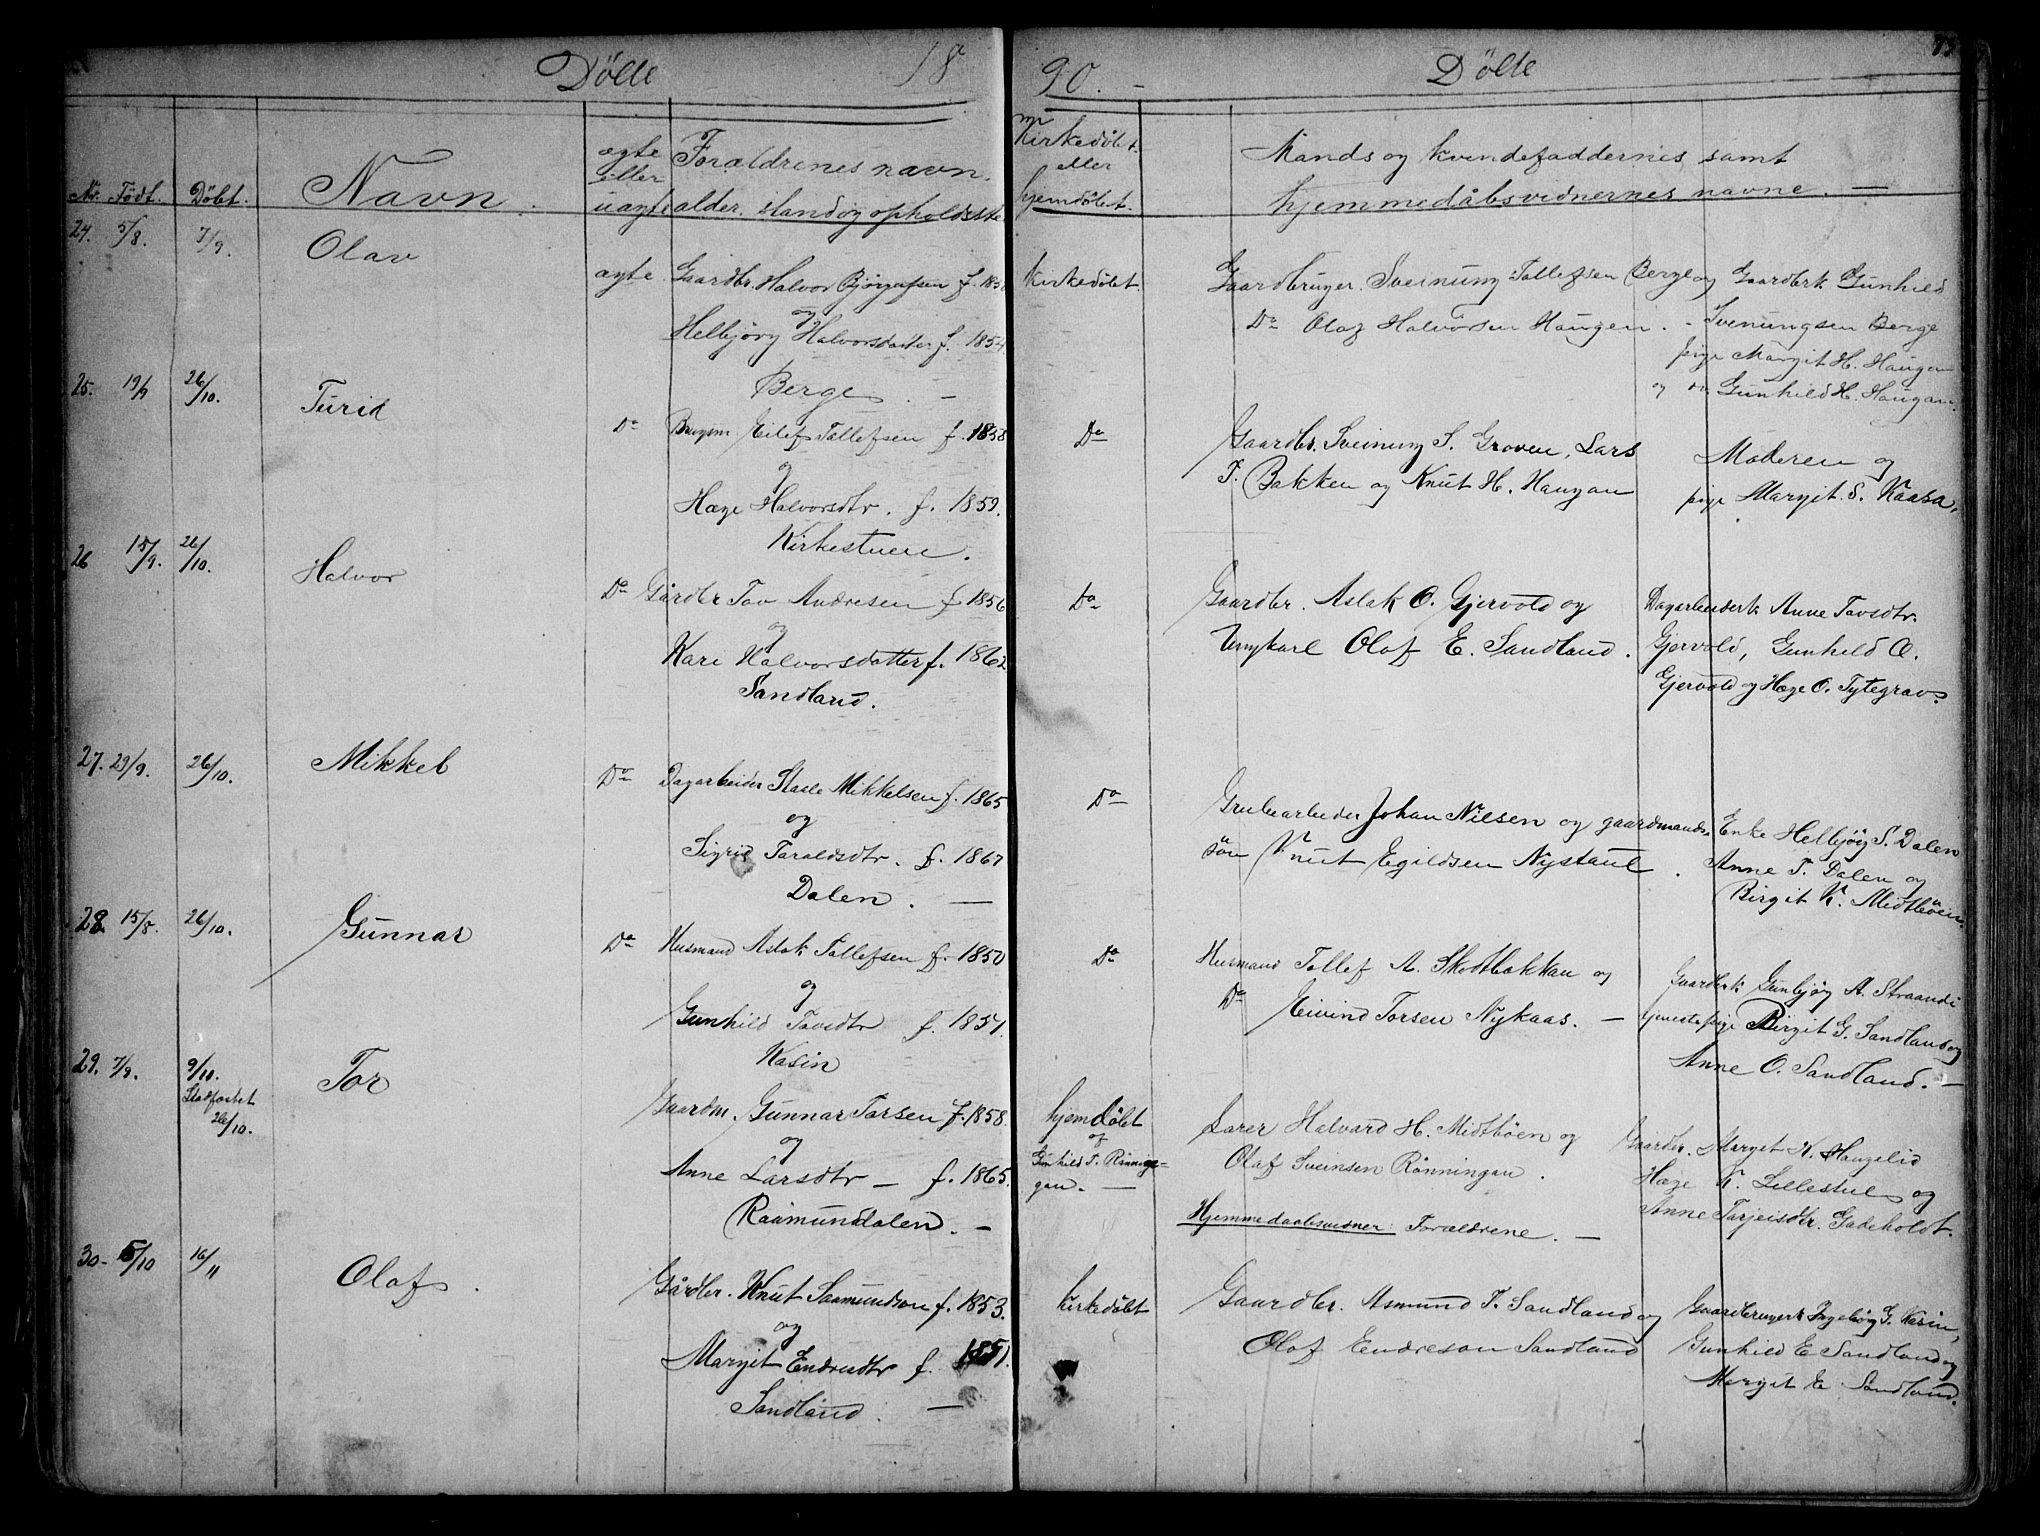 Dölte 18
90. Dölte
Nr. Födt. Döbt. Navn.
ægte eller uagte
Forældrenes navn.
alder. stand og opholdsste
Kirkedöbt.
eller
hjemdöbt.
Mands og kvindefaddernes samt
hjemmedåbsvidnernes navne. —
24. 5/8. 7/9. Olav
ægte Gaardbr. Halvor Bjørgufsen f. 185
og
Helbjörg Halvorsdatter f. 1854
Berge. —
Kirkedöbt.
Gaardbruger. Sveinung Tollefsen Berge og
Do Olaf Halvorsen Haugen.
Gaardbrk Gunhild
Svenungsen Berge
pige Margit H. Haugan
og Do Gunhild H. Haugan.
25. 19/9 26/10. Turid
Do Brugsm Eilef Tollefsen f. 1858
og
Hæge Halvorsdtr. f. 1859.
Kirkestuen.
Do
Gaardbr. Sveinung S. Groven, Lars
T. Bakken og Knut H. Haugan
Moderen og
pige Margit. S. Kaasa,
26 15/9. 26/10. Halvor
Do Gårdbr Tov Andresen f 1856
og
Kari Halvorsdatter f. 1862
Sandland.
Do
Gaardbr. Aslak O. Gjervold og
Ungkarl Olaf E. Sandland.
Dagarbeiderk Anne Tovsdtr.
Gjervold, Gunhild O.
Gjervold og Hæge O. Tytegrav.
27. 29/9. 26/10. Mikkel
Do Dagarbeider Stasle Mikkelsen f. 1865
og
Sigrid Taraldsdtr. f. 1867
Dalen. —
Do
Grubearbeider Johan Nilsen og gaardmands
sön Knut Egildsen Nystaul.
Enke Helbjög S. Dalen
Anne T. Dalen og
Birgit K. Midtböen
28. 15/8. 26/10. Gunnar
Do Husmand Aslak Tollefsen f. 1850
og
Gunhild Tovsdtr f. 1851.
Kasin
Do
Husmand Tollef A. Skotbakkan og
Do Eivind Torsen Nykaas. —
Gaardbrk Gunbjög A. Straand
tjenestepige Birgit G. Sandland og
Anne O. Sandland. —
29. 7/9. 9/10. Stadfæstet 26/10. Tor
Gaardm. Gunnar Torsen f. 1858.
og
Anne Larsdtr — f. 1865.
Raamunddalen. —
hjemdöbt
af
Gunhild T. Rönnin-
gan. —
Lærer Halvard H. Midtböen og
Olaf Sveinsen Rönningan.
Hjemmedaabsvidner: Forældrene. —
Gaardbr. Marget H. Haugelid
Hæge K. Lillestul og
Anne Tarjeisdtr. Gakeholdt.
30. 5/10 16/11 Olaf.
Gårdbr. Knut Saamundson f. 1853.
og
Margit Endresdtr f. 1851.
Sandland. —
kirkedöbt
Gaardbr. Asmund T. Sandland og
Olaf Endreson Sandland
Gaardbrugerk Ingebög G. Kasin,
Gunhild E Sandland og
Margit E Sandland.